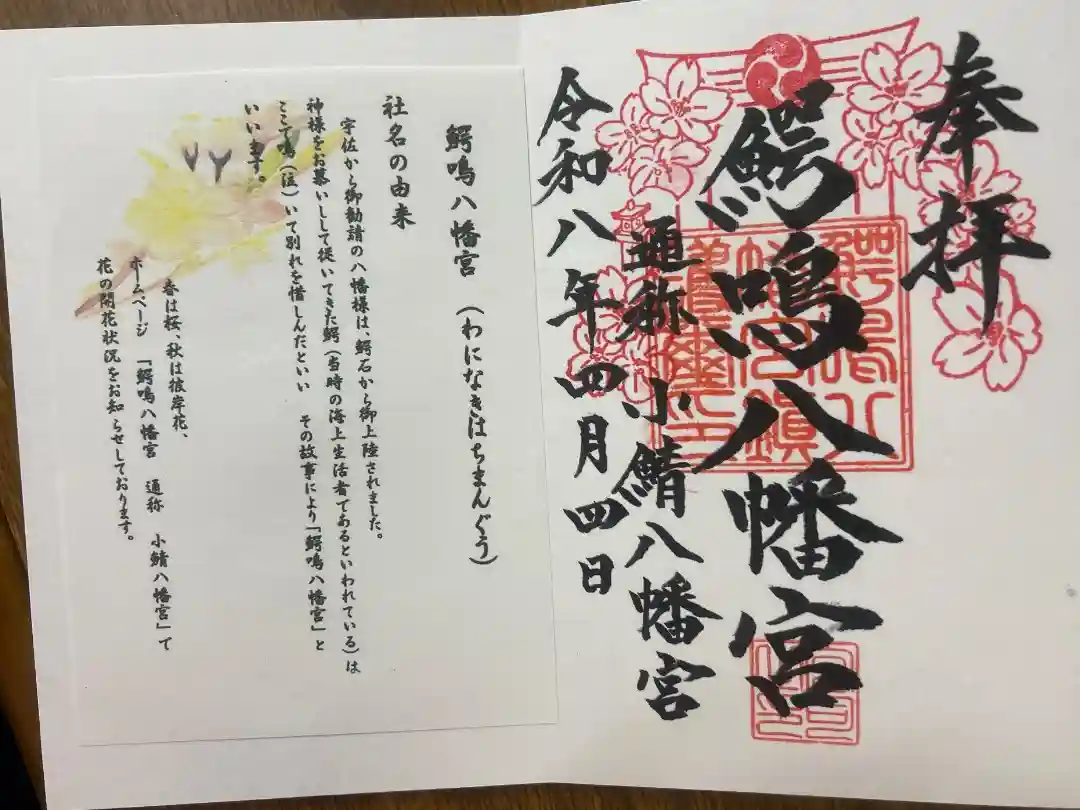 奉拝
鰐鳴八幡宮
通称 小鯖八幡宮
令和八年四月四日
鰐鳴八幡宮 (わになきはちまんぐう)
社名の由来
宇佐から御勧請の八幡様は、鰐石から御上陸されました。
神様をお慕いして従いてきた鰐(当時の海上生活者であるといわれている)は
ここで鳴(泣)いて別れを惜しんだといい その故事により「鰐鳴八幡宮」と
いいます。
春は桜、秋は彼岸花、
ホームページ 「鰐鳴八幡宮 通称 小鯖八幡宮」で
花の開花状況をお知らせしております。